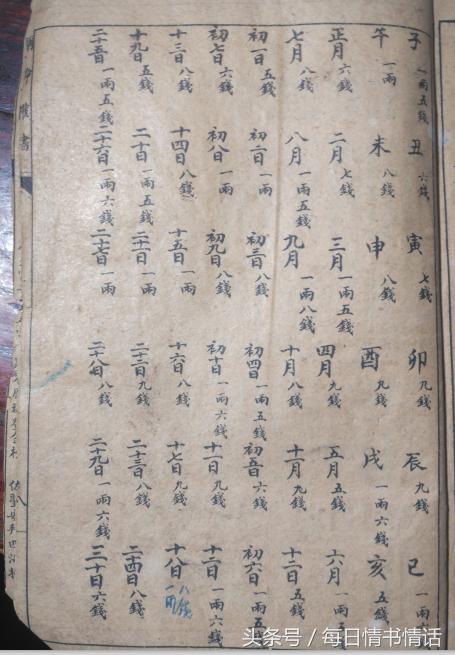 子 一兩五錢 丑 六錢 寅 七錢 卯 九錢 辰 九錢 巳 一兩
午 一兩 未 八錢 申 八錢 酉 九錢 戌 一兩六錢 亥 五錢
正月 六錢 二月 七錢 三月 一兩五錢 四月 九錢 五月 五錢 六月 一兩
七月 八錢 八月 一兩五錢 九月 一兩八錢 十月 八錢 十一月 九錢 十二月 五錢
初一日 五錢 初二日 一兩 初三日 八錢 初四日 一兩五錢 初五日 六錢 初六日 一兩五錢
初七日 六錢 初八日 一兩 初九日 八錢 初十日 一兩六錢 十一日 九錢 十二日 一兩六錢
十三日 八錢 十四日 八錢 十五日 一兩 十六日 八錢 十七日 九錢 十八日 八錢
十九日 五錢 二十日 一兩五錢 二十一日 一兩 二十二日 九錢 二十三日 八錢 二十四日 八錢
二十五日 一兩五錢 二十六日 一兩六錢 二十七日 一兩 二十八日 八錢 二十九日 一兩六錢 三十日 六錢
头条号 / 每日情书情话